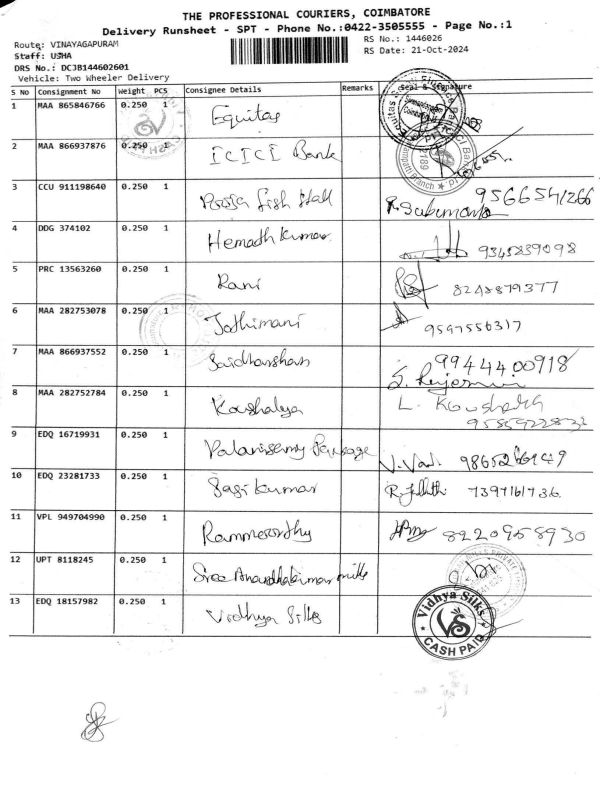 THE PROFESSIONAL COURIERS, COIMBATORE
Delivery Runsheet - SPT - Phone No.:0422-3505555 - Page No.:1
Route: VINAYAGAPURAM
RS No.: 1446026
Staff: USHA
RS Date: 21-Oct-2024
DRS No.: DCJB144602601
Vehicle: Two Wheeler Delivery
S No Consignment No Weight PCS Consignee Details Remarks Seal & Signature
1 MAA 865846766 0.250 1 Equitas
2 MAA 866937876 0.250 1 ICICI Bank
3 CCU 911198640 0.250 1 fish stall 9566541266
4 DDG 374102 0.250 1 Hemathkumar 9345239098
5 PRC 13563260 0.250 1 Rani 8248879377
6 MAA 282753078 0.250 1 Jothimani 9597556317
7 MAA 866937552 0.250 1 Saidharshan 9944400918
8 MAA 282752784 0.250 1 Koushalya L. Koushalya
9 EDQ 16719931 0.250 1 Palanisamy
10 EDQ 23281733 0.250 1 Sasikumar 7397161736.
11 VPL 949704990 0.250 1 Rammoorthy 8220958930
12 UPT 8118245 0.250 1 Sree Anandhakumar mills
13 EDQ 18157982 0.250 1 Vidhya Silks
Vidhya Silks
VS
CASH PAID